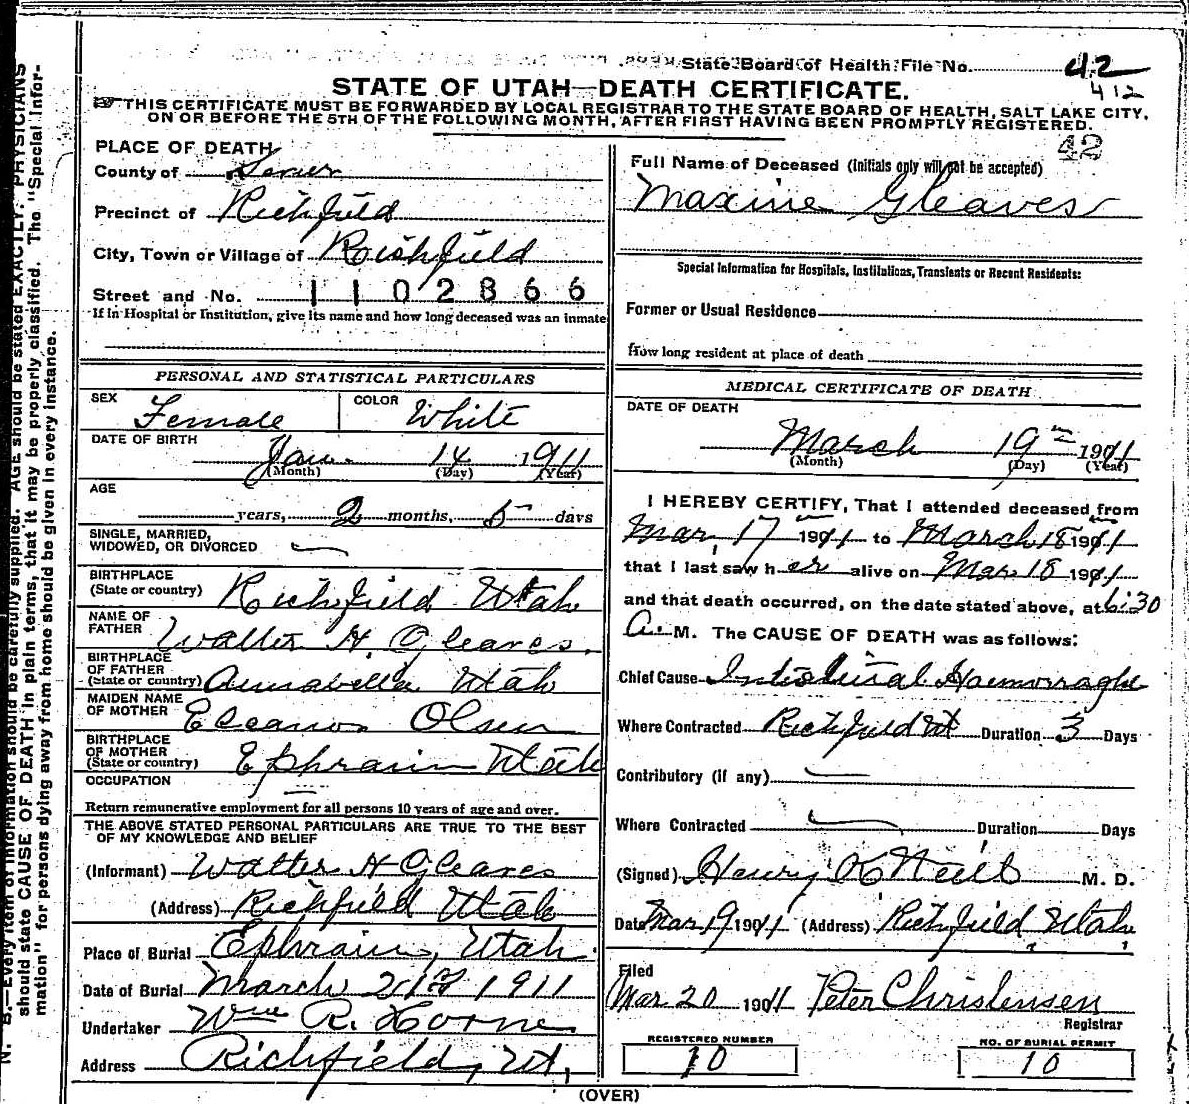 State Board of Health File No. 42
412
STATE OF UTAH—DEATH CERTIFICATE.
THIS CERTIFICATE MUST BE FORWARDED BY LOCAL REGISTRAR TO THE STATE BOARD OF HEALTH, SALT LAKE CITY,
ON OR BEFORE THE 5TH OF THE FOLLOWING MONTH, AFTER FIRST HAVING BEEN PROMPTLY REGISTERED.
42
PLACE OF DEATH
County of Sevier
Precinct of Richfield
City, Town or Village of Richfield
Street and No. 1102866
If in Hospital or Institution, give its name and how long deceased was an inmate
PERSONAL AND STATISTICAL PARTICULARS
SEX Female COLOR White
DATE OF BIRTH
Jan. 14 1911
(Month) (Day) (Year)
AGE
years, 2 months, 5 days
SINGLE, MARRIED,
WIDOWED, OR DIVORCED
BIRTHPLACE
(State or country) Richfield Utah
NAME OF
FATHER Walter H. Gleaves.
BIRTHPLACE
OF FATHER
(State or country) Annabella Utah
MAIDEN NAME
OF MOTHER Eleanor Olsen
BIRTHPLACE
OF MOTHER
(State or country) Ephraim Utah
OCCUPATION
Return remunerative employment for all persons 10 years of age and over.
THE ABOVE STATED PERSONAL PARTICULARS ARE TRUE TO THE BEST
OF MY KNOWLEDGE AND BELIEF
(Informant) Walter H Gleaves
(Address) Richfield Utah
Place of Burial Ephraim, Utah
Date of Burial March 21st 1911
Undertaker Wm R. Horne
Address Richfield, Ut,
Full Name of Deceased (Initials only will not be accepted)
Maxine Gleaves
Special Information for Hospitals, Institutions, Transients or Recent Residents:
Former or Usual Residence
How long resident at place of death
MEDICAL CERTIFICATE OF DEATH
DATE OF DEATH
March 19th 1911
(Month) (Day) (Year)
I HEREBY CERTIFY, That I attended deceased from
Mar, 17 1911 to March 18th 1911
that I last saw her alive on Mar 18 1911
and that death occurred, on the date stated above, at 6:30
A. M. The CAUSE OF DEATH was as follows:
Chief Cause Intestinal Haemorraghe
Where Contracted Richfield Ut Duration 3 Days
Contributory (if any)
Where Contracted Duration Days
(Signed) Henry K Neill M. D.
Date Mar 19 1911 (Address) Richfield Utah,
Filed
Mar 20 1911 Peter Christensen
Registrar
REGISTERED NUMBER
10
NO. OF BURIAL PERMIT
10
(OVER)
N. B.—Every item of information should be carefully supplied. AGE should be stated EXACTLY. PHYSICIANS
should state CAUSE OF DEATH in plain terms, that it may be properly classified. The "Special Infor-
mation" for persons dying away from home should be given in every instance.